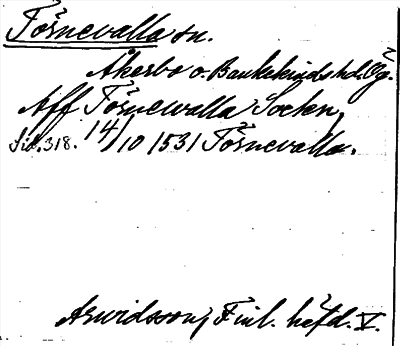 Törnevalla sn.
Åkerbo o. Bankekinds hd. Ög.
Aff Törnewalla Socken,
sid. 318. 14/10 1531 Törnevalla.
Arwidsson, Finl. häfd. V.